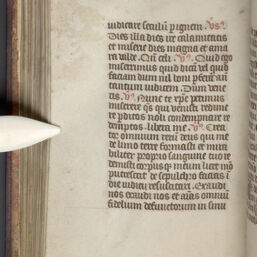 iudicare seculū p ignem. vs.
Dies illa dies ire calamitatis
et miserie dies magna et ama
ra valde. Qn̄ celi. v̄. Quid ego
miserrimus quid dicā vel quid
faciam dum nil boni pferā añ
tantum iudicem. Dum vene
ris. v̄. Nunc te xp̄e petimus
miserere q̄s qui venisti redime
re pditos noli contempnare re
demptos. libera me. v̄. Crea
tor omnium rerū deus qui me
de limo terre formasti et mira
biliter proprio sanguine tuo re
demisti corpusq̄ meum licet mō
putrescat de sepulchro facias ī
die iudicii resuscitari. Exaudi
nos exaudi nos et aīas omniū
fidelium defunctorum in sinu